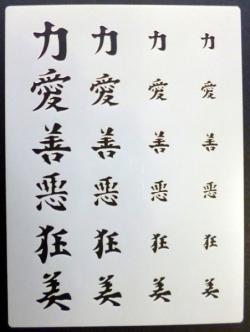 力 力 力 力
愛 愛 愛 愛
善 善 善 善
悪 悪 悪 悪
狂 狂 狂 狂
美 美 美 美